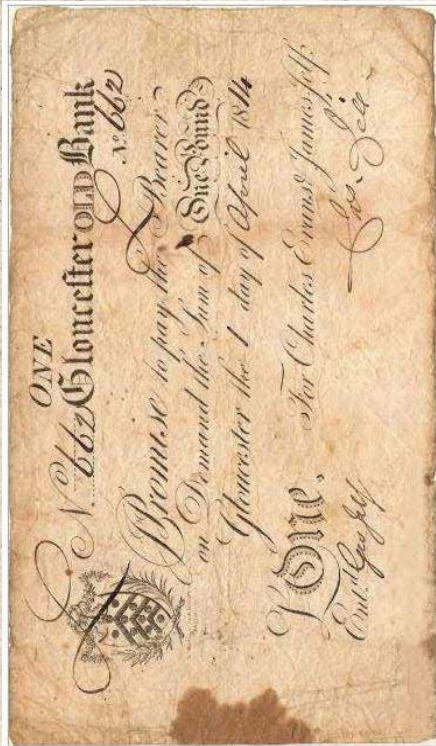 ONE
No. 662 Gloucester OLD Bank No. 662
I Promise to pay the Bearer
on Demand the Sum of One Pound
Gloucester the 1 day of April 1814
For Charles Evans & James Jelf.
£One.
Entd.